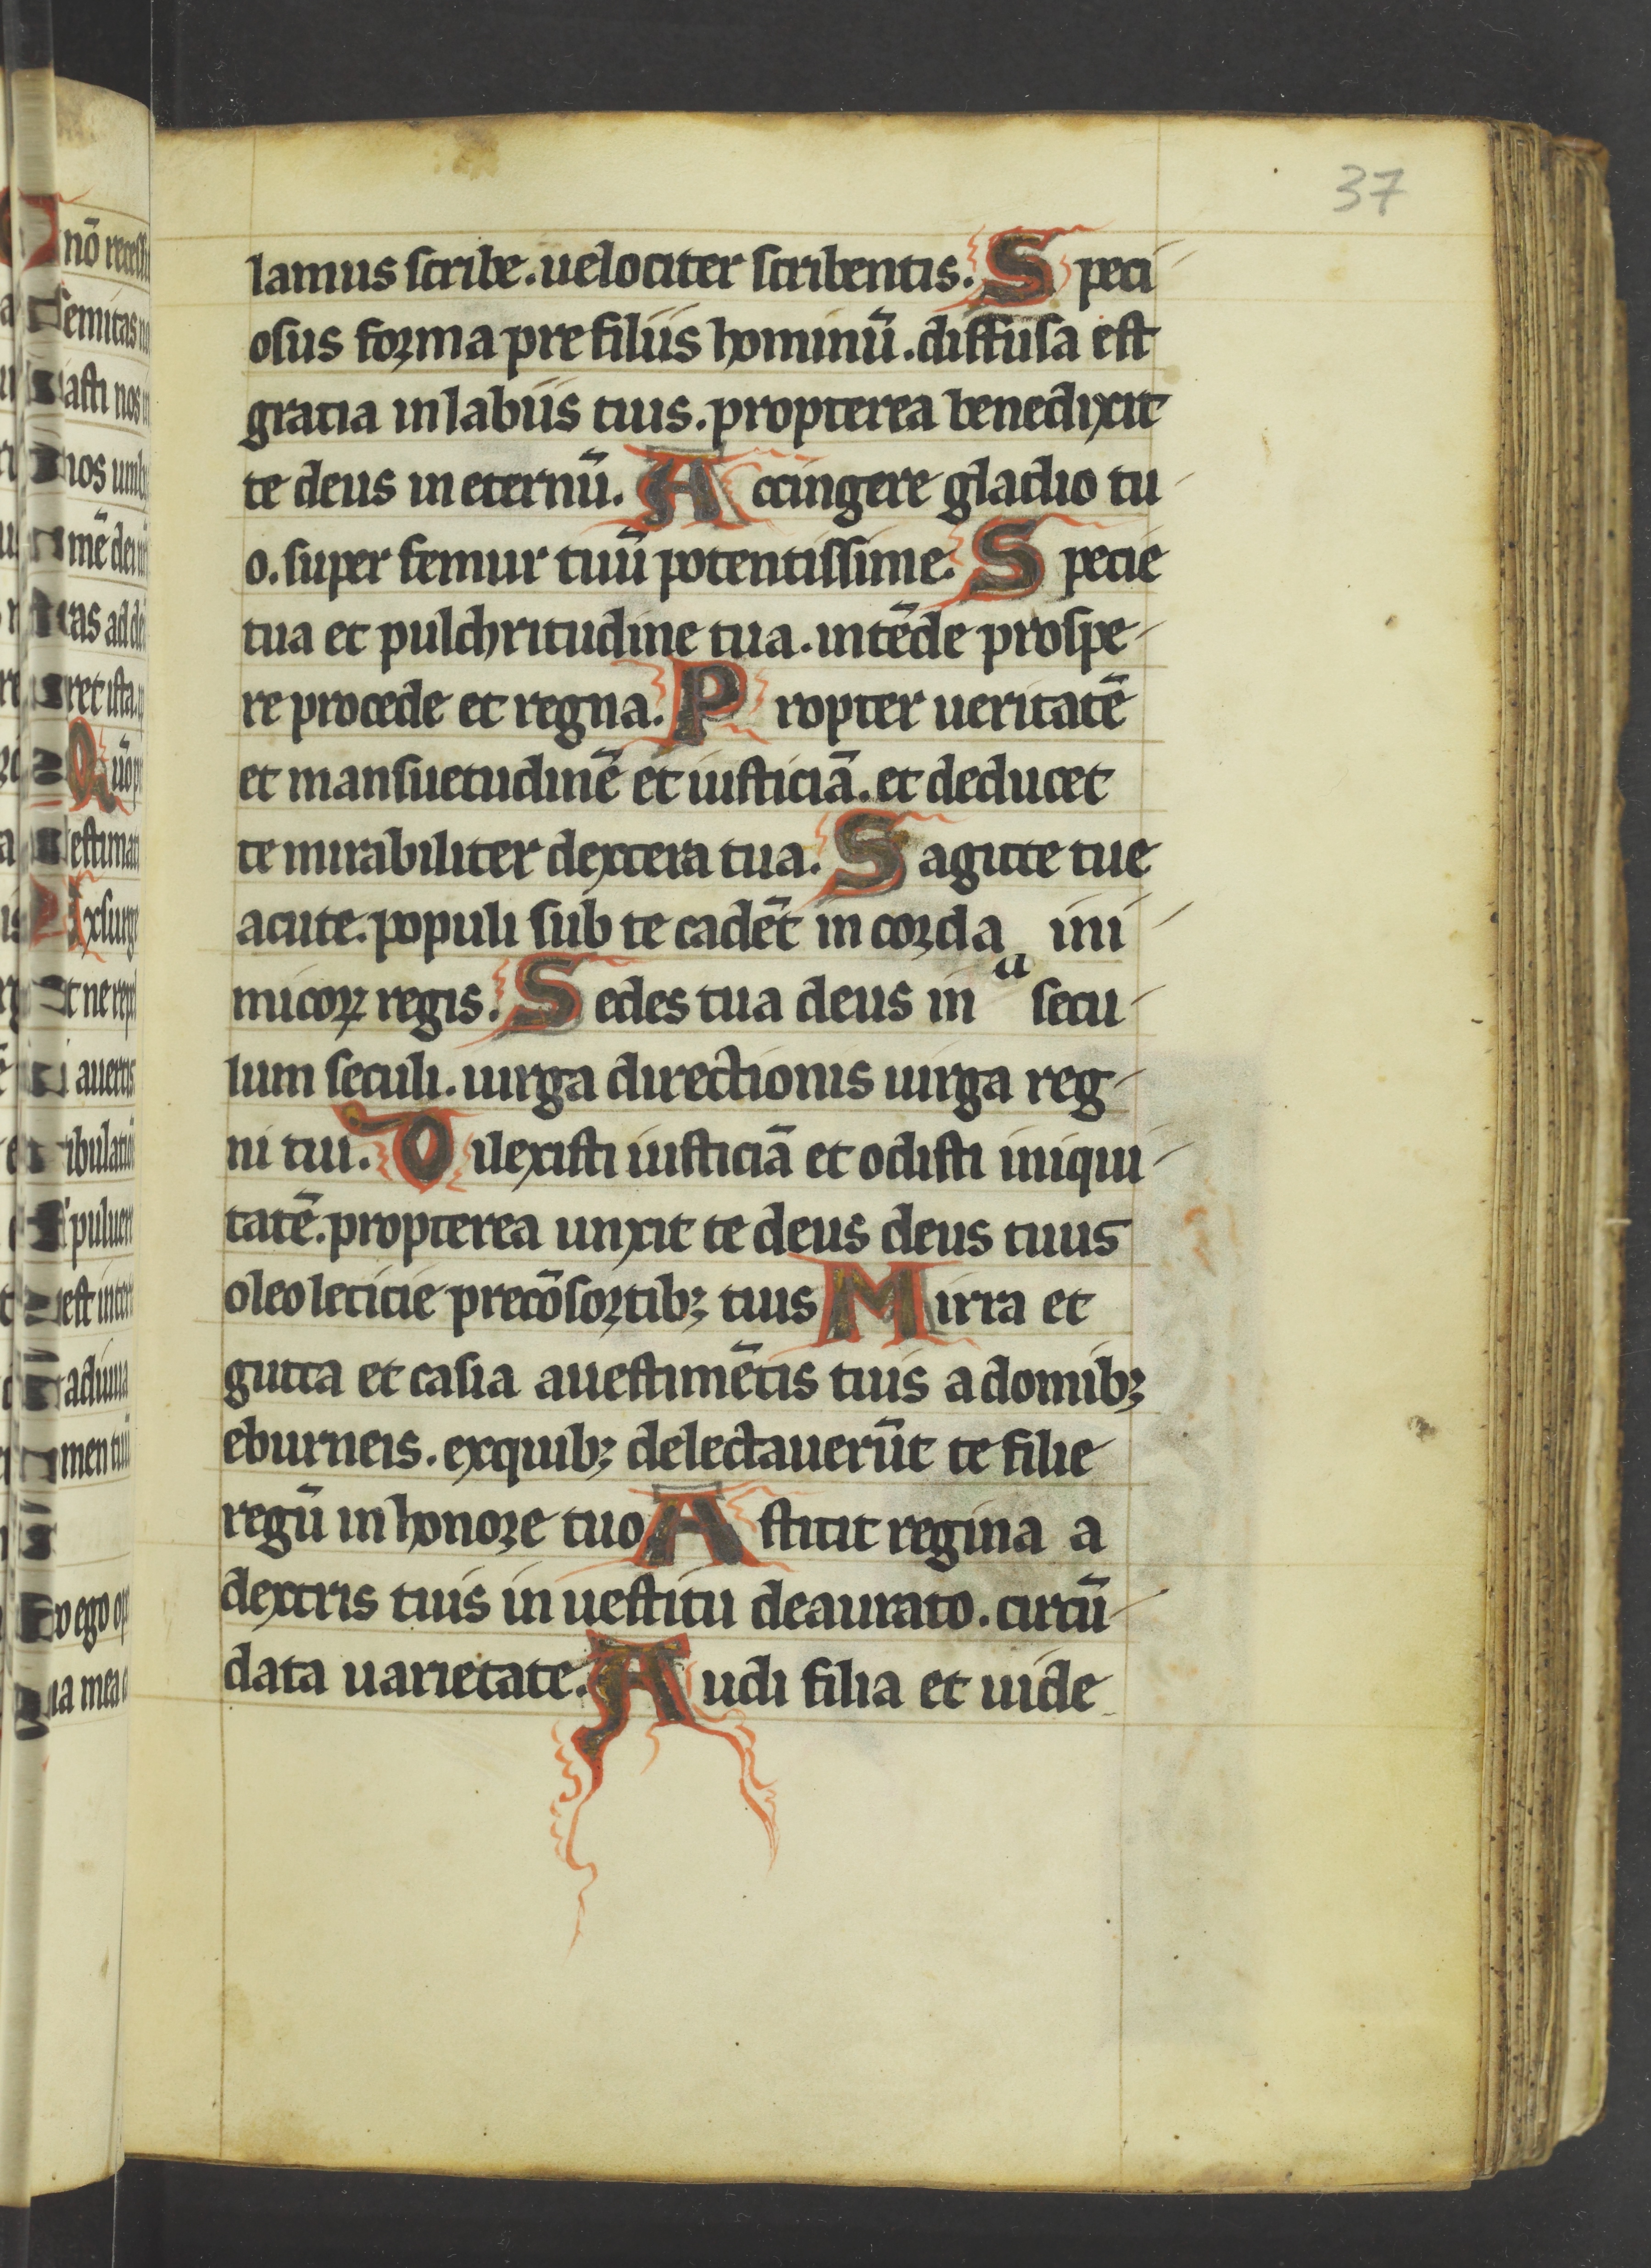 37
lamus scribe. uelociter scribentis. Speci
osus forma pre filiis hominū. diffusa est
gratia in labiis tuis. propterea benedixit
te deus in eternū. Accingere gladio tu
o. super femur tuū potentissime. Specie
tua et pulchritudine tua. intēde prospe-
re procede et regna. Propter ueritatē
et mansuetudinē et iusticiā. et deducet
te mirabiliter dextera tua. Sagitte tue
acute. populi sub te cadēt in corda ini
micoꝝ regis. Sedes tua deus in a secu-
lum seculi. uirga directionis uirga reg-
ni tui. Dilexisti iusticiā et odisti iniqui-
tatē. propterea unxit te deus deus tuus
oleo leticie precōsortibꝫ tuis Mirra et
gutta et casia auestimētis tuis a domibꝫ
eburneis. exquibꝫ delectauerūt te filie
regū in honore tuo Astitit regina a
dextris tuis in uestitu deaurato. circū-
data uarietate. Audi filia et uide